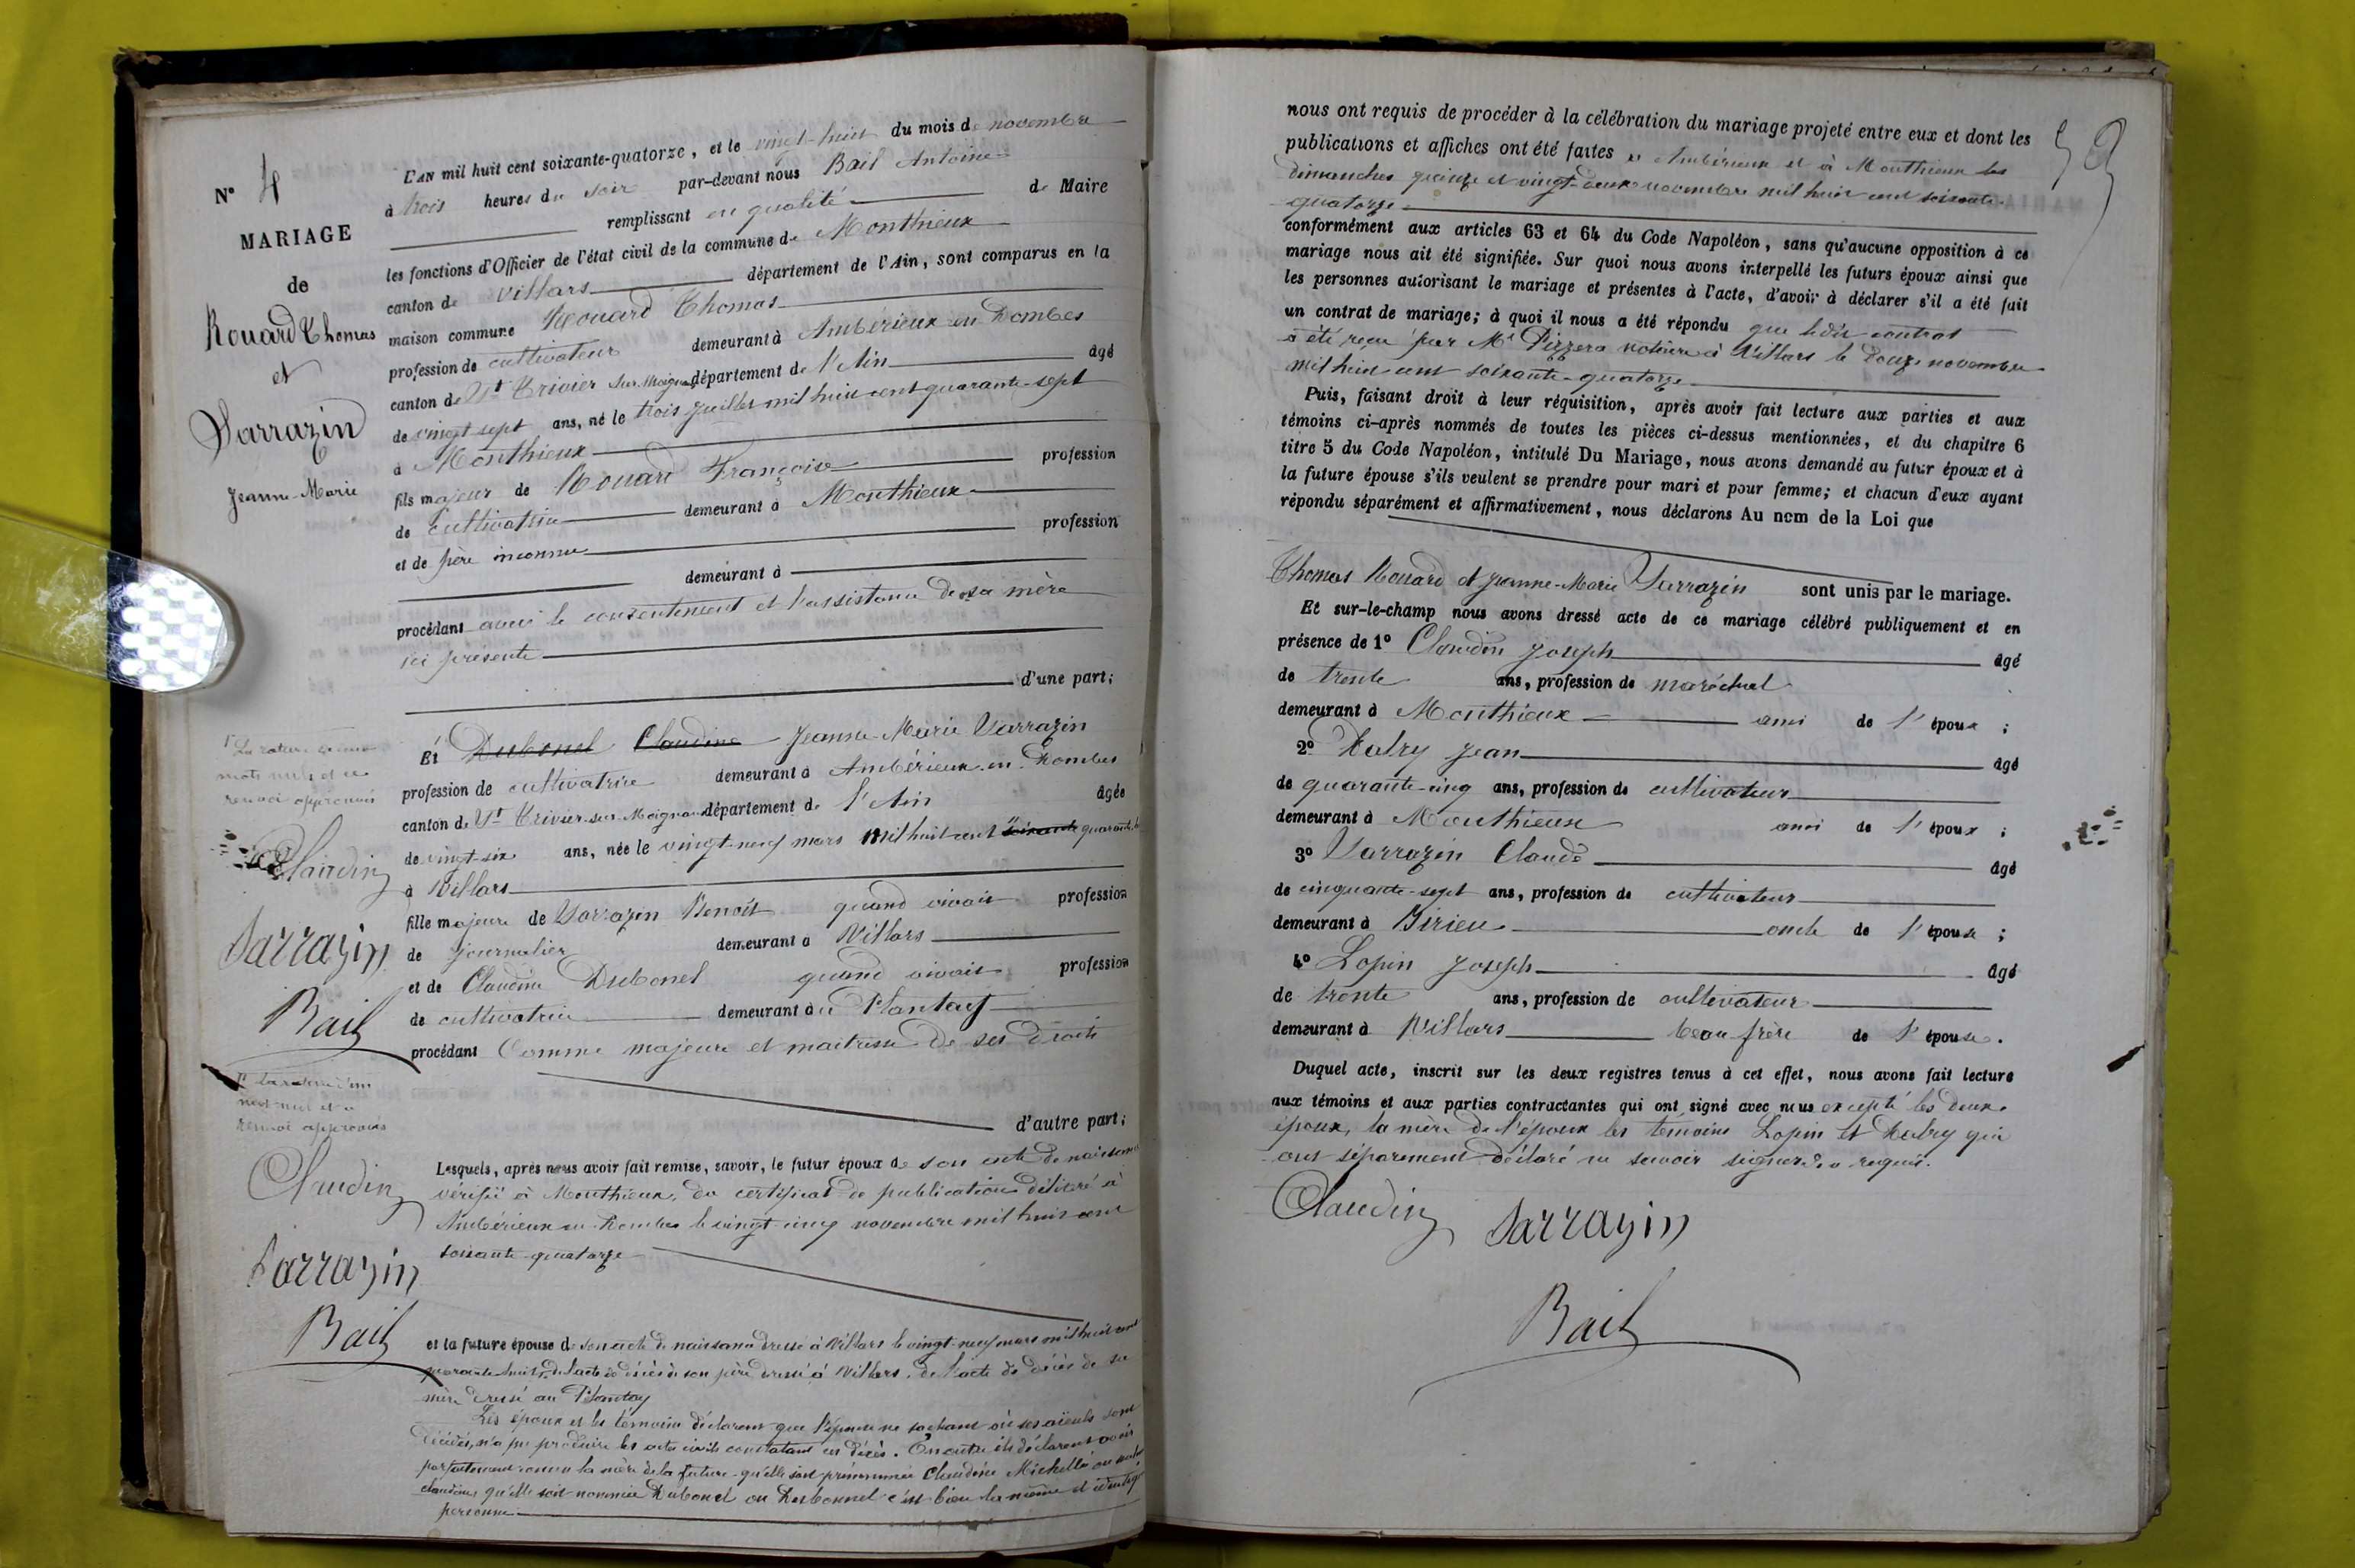 N° 4
MARIAGE
de
Rouard Thomas
et
Sarrazin
Jeanne-Marie
L'AN mil huit cent soixante-quatorze, et le vingt-huit du mois de novembre
à trois heures du soir par-devant nous Bail Antoine
remplissant en qualité de Maire
les fonctions d'Officier de l'état civil de la commune de Monthieux
canton de Villars département de l'Ain, sont comparus en la
maison commune Rouard Thomas
profession de cultivateur demeurant à Ambérieux en Dombes
canton de St Trivier sur Moignans département de l'Ain âgé
de vingt sept ans, né le trois juillet mil huit cent quarante-sept
à Monthieux
fils majeur de Rouard Françoise profession
de cultivatrice demeurant à Monthieux
et de père inconnu profession
demeurant à
procédant avec le consentement et l'assistance de sa mère
ici présente
d'une part;
Et Dubonel Claudine Jeanne-Marie Sarrazin
profession de cultivatrice demeurant à Ambérieux en Dombes
canton de St Trivier-sur-Moignans département de l'Ain âgée
de vingt-six ans, née le vingt-neuf mars mil huit cent soixante quarante-h
à Villars
fille majeure de Sarrazin Benoît quand vivait profession
de journalier demeurant à Villars
et de Claudine Dubonel quand vivait profession
de cultivatrice demeurant à u Plantay
procédant Comme majeure et maitresse de ses droits
d'autre part;
1° La rature de deux
mots nuls et ce
renvoi approuvés
Claudin
Sarrazin
Bail
1° la rature d'un
mot nul et
renvoi approuvés
Claudin
Sarrazin
Bail
Lesquels, après nous avoir fait remise, savoir, le futur époux de son acte de naissance
vérifié à Monthieux, du certificat de publication délivré à
Ambérieux en Dombes le vingt cinq novembre mil huit cent
soixante-quatorze
et la future épouse de son acte de naissance dressé à Villars le vingt-neuf mars mil huit cent
quarante-huit, de l'acte de décès de son père dressé à Villars, de l'acte de décès de sa
mère dressé au Plantay
Les époux et les témoins déclarent que l'épouse ne sachant où ses aïeuls sont
décédés, n'a pu produire les actes civils constatant ces décès. En outre ils déclarent avoir
parfaitement connu la mère de la future qu'elle soit prénommée Claudine Michelle ou
claudine, qu'elle soit nommée Dubonel ou Desbonnel c'est bien la même et identique
personne
59
nous ont requis de procéder à la célébration du mariage projeté entre eux et dont les
publications et affiches ont été faites à Ambérieux et à Monthieux les
dimanches quinze et vingt-deux novembre mil huit cent soixante-
quatorze
conformément aux articles 63 et 64 du Code Napoléon, sans qu'aucune opposition à ce
mariage nous ait été signifiée. Sur quoi nous avons interpellé les futurs époux ainsi que
les personnes autorisant le mariage et présentes à l'acte, d'avoir à déclarer s'il a été fait
un contrat de mariage; à quoi il nous a été répondu que ledit contrat
a été reçu par Me Pizzera notaire à Villars le douze novembre
mil huit cent soixante-quatorze
Puis, faisant droit à leur réquisition, après avoir fait lecture aux parties et aux
témoins ci-après nommés de toutes les pièces ci-dessus mentionnées, et du chapitre 6
titre 5 du Code Napoléon, intitulé Du Mariage, nous avons demandé au futur époux et à
la future épouse s'ils veulent se prendre pour mari et pour femme; et chacun d'eux ayant
répondu séparément et affirmativement, nous déclarons Au nom de la Loi que
Thomas Rouard et Jeanne-Marie Sarrazin sont unis par le mariage.
Et sur-le-champ nous avons dressé acte de ce mariage célébré publiquement et en
présence de 1° Claudin Joseph âgé
de trente ans, profession de maréchal
demeurant à Monthieux ami de l'époux ;
2° Dabry Jean âgé
de quarante-cinq ans, profession de cultivateur
demeurant à Monthieux ami de l'époux ;
3° Sarrazin Claude âgé
de cinquante-sept ans, profession de cultivateur
demeurant à Birieu oncle de l'épouse ;
4° Lopin Joseph âgé
de trente ans, profession de cultivateur
demeurant à Villars beau frère de l'épouse.
Duquel acte, inscrit sur les deux registres tenus à cet effet, nous avons fait lecture
aux témoins et aux parties contractantes qui ont signé avec nous excepté les deux
époux, la mère de l'époux les témoins Lopin et Dabry qui
ont séparément déclaré ne savoir signer de ce requis.
Claudin Sarrazin
Bail